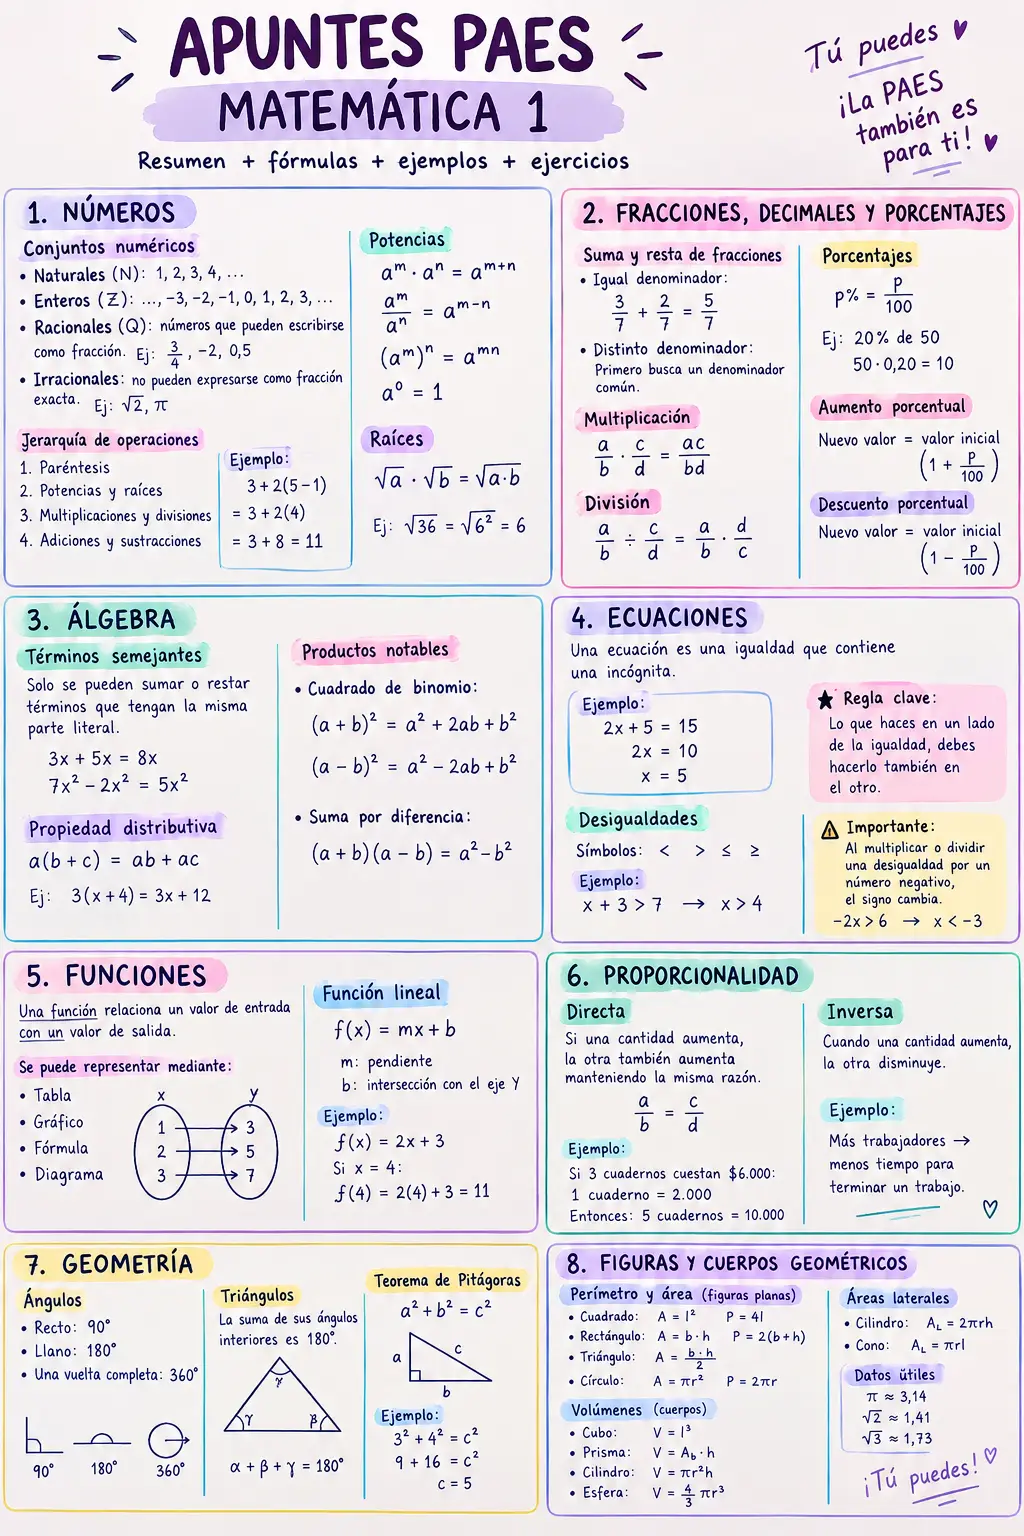 APUNTES PAES
MATEMÁTICA 1
Resumen + fórmulas + ejemplos + ejercicios
Tú puedes
¡La PAES
también es
para ti!
1. NÚMEROS
Conjuntos numéricos
• Naturales (N): 1, 2, 3, 4, ...
• Enteros (Z): ..., -3, -2, -1, 0, 1, 2, 3, ...
• Racionales (Q): números que pueden escribirse
como fracción. Ej: 3/4, -2, 0,5
• Irracionales: no pueden expresarse como fracción
exacta. Ej: √2, π
Jerarquía de operaciones
1. Paréntesis
2. Potencias y raíces
3. Multiplicaciones y divisiones
4. Adiciones y sustracciones
Ejemplo:
3 + 2(5 - 1)
= 3 + 2(4)
= 3 + 8 = 11
Potencias
aᵐ · aⁿ = aᵐ⁺ⁿ
aᵐ/aⁿ = aᵐ⁻ⁿ
(aᵐ)ⁿ = aᵐⁿ
a⁰ = 1
Raíces
√a · √b = √a·b
Ej: √36 = √6² = 6
2. FRACCIONES, DECIMALES Y PORCENTAJES
Suma y resta de fracciones
• Igual denominador:
3/7 + 2/7 = 5/7
• Distinto denominador:
Primero busca un denominador
común.
Multiplicación
a/b · c/d = ac/bd
División
a/b ÷ c/d = a/b · d/c
Porcentajes
P% = P/100
Ej: 20% de 50
50 · 0,20 = 10
Aumento porcentual
Nuevo valor = valor inicial
(1 + P/100)
Descuento porcentual
Nuevo valor = valor inicial
(1 - P/100)
3. ÁLGEBRA
Términos semejantes
Solo se pueden sumar o restar
términos que tengan la misma
parte literal.
3x + 5x = 8x
7x² - 2x² = 5x²
Propiedad distributiva
a(b + c) = ab + ac
Ej: 3(x + 4) = 3x + 12
Productos notables
• Cuadrado de binomio:
(a + b)² = a² + 2ab + b²
(a - b)² = a² - 2ab + b²
• Suma por diferencia:
(a + b)(a - b) = a² - b²
4. ECUACIONES
Una ecuación es una igualdad que contiene
una incógnita.
Ejemplo:
2x + 5 = 15
2x = 10
x = 5
★ Regla clave:
Lo que haces en un lado
de la igualdad, debes
hacerlo también en
el otro.
Desigualdades
Símbolos: < > ≤ ≥
Ejemplo:
x + 3 > 7 → x > 4
⚠ Importante:
Al multiplicar o dividir
una desigualdad por un
número negativo,
el signo cambia.
-2x > 6 → x < -3
5. FUNCIONES
Una función relaciona un valor de entrada
con un valor de salida.
Se puede representar mediante:
• Tabla
• Gráfico
• Fórmula
• Diagrama
x y
1 → 3
2 → 5
3 → 7
Función lineal
f(x) = mx + b
m: pendiente
b: intersección con el eje Y
Ejemplo:
f(x) = 2x + 3
Si x = 4:
f(4) = 2(4) + 3 = 11
6. PROPORCIONALIDAD
Directa
Si una cantidad aumenta,
la otra también aumenta
manteniendo la misma razón.
a/b = c/d
Ejemplo:
Si 3 cuadernos cuestan $6.000:
1 cuaderno = 2.000
Entonces: 5 cuadernos = 10.000
Inversa
Cuando una cantidad aumenta,
la otra disminuye.
Ejemplo:
Más trabajadores →
menos tiempo para
terminar un trabajo.
7. GEOMETRÍA
Ángulos
• Recto: 90°
• Llano: 180°
• Una vuelta completa: 360°
90° 180° 360°
Triángulos
La suma de sus ángulos
interiores es 180°.
γ
γ β
α + β + γ = 180°
Teorema de Pitágoras
a² + b² = c²
a c
b
Ejemplo:
3² + 4² = c²
9 + 16 = c²
c = 5
8. FIGURAS Y CUERPOS GEOMÉTRICOS
Perímetro y área (figuras planas)
• Cuadrado: A = l² P = 4l
• Rectángulo: A = b · h P = 2(b + h)
• Triángulo: A = b · h/2
• Círculo: A = πr² P = 2πr
Volúmenes (cuerpos)
• Cubo: V = l³
• Prisma: V = A_b · h
• Cilindro: V = πr²h
• Esfera: V = 4/3 πr³
Áreas laterales
• Cilindro: A_L = 2πrh
• Cono: A_L = πrl
Datos útiles
π ≈ 3,14
√2 ≈ 1,41
√3 ≈ 1,73
¡Tú puedes!